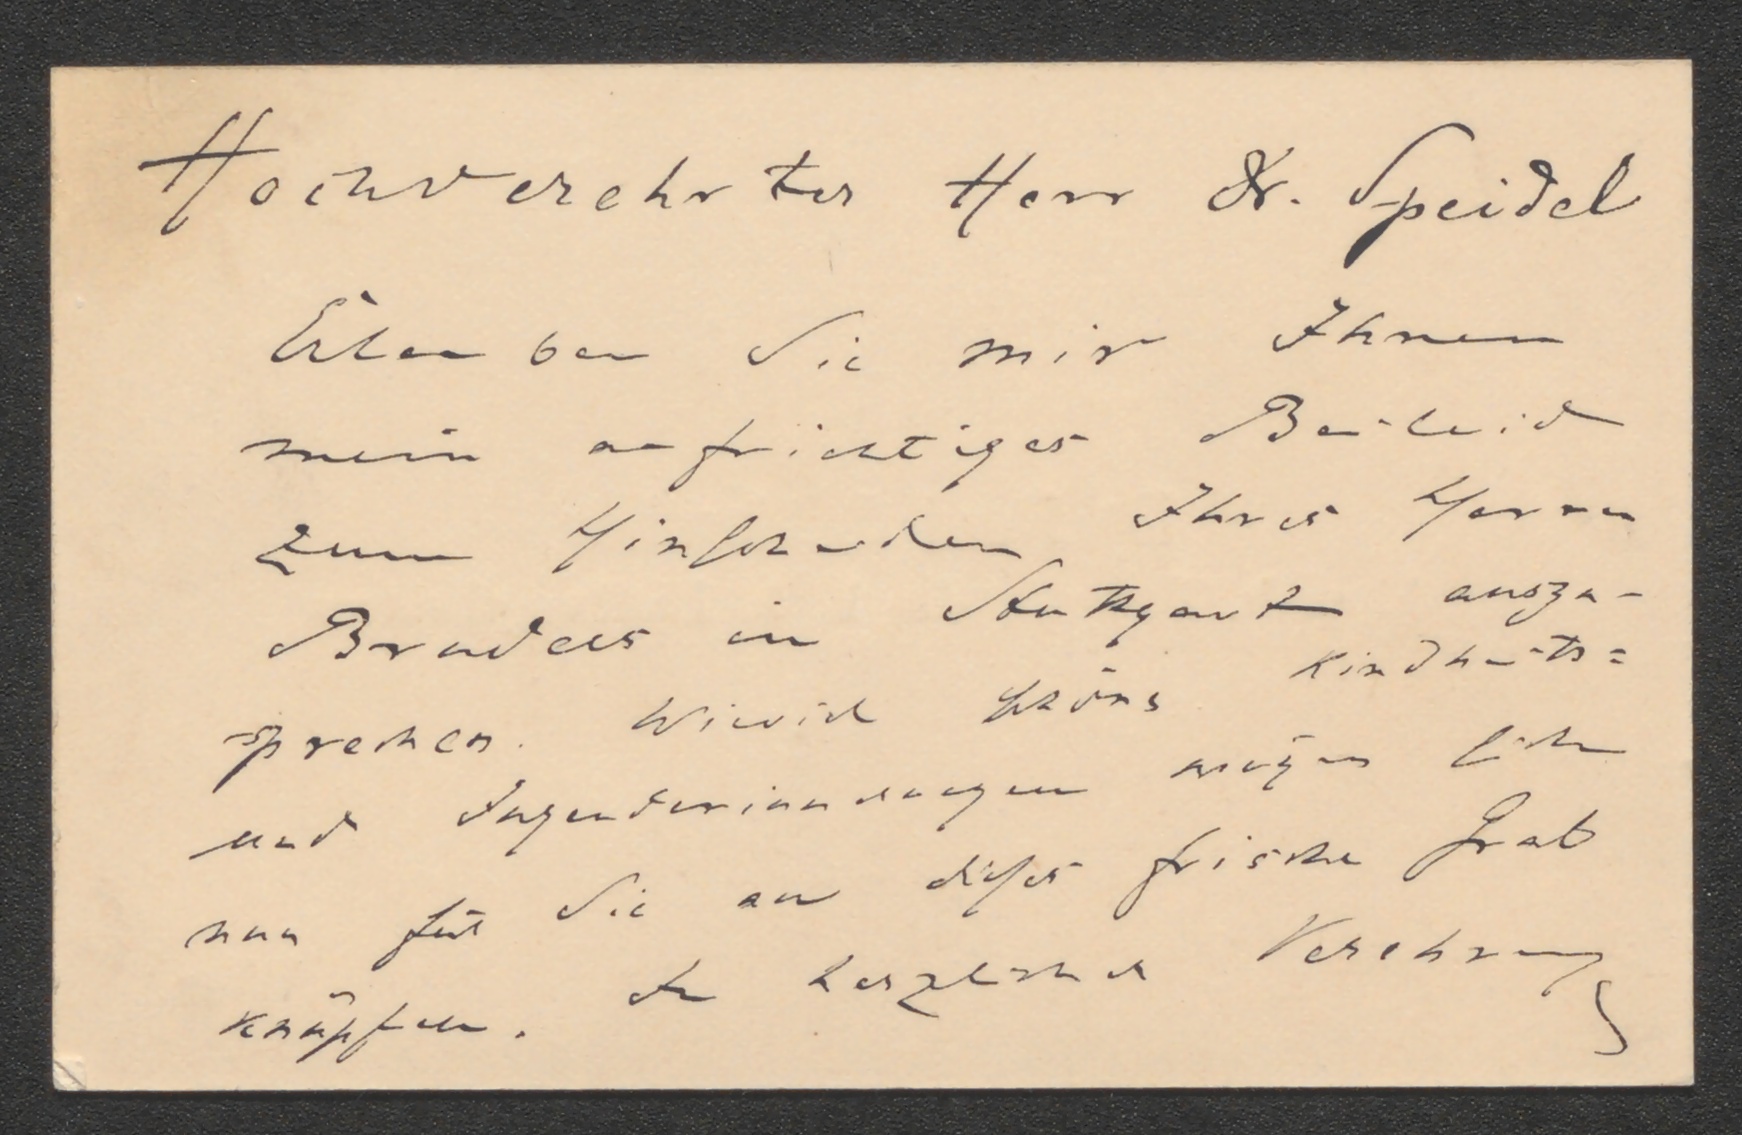 Hochverehrter Herr Dr. Speidel
Erlauben Sie mir Ihnen
mein aufrichtiges Beileid
zum Hinscheiden Ihres Herrn
Bruders in Stuttgart auszu-
sprechen. Wieviel schöne Kindheits=
und Jugenderinnerungen mögen sich
nun für Sie an dieses frische Grab
knüpfen. In herzlicher Verehrung